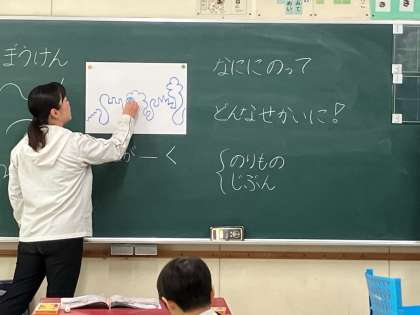 ぼうけん
がーく
なににのって
どんなせかいに!
のりもの
じぶん